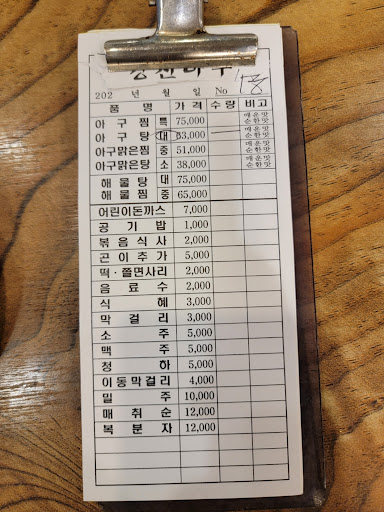 202 년 월 일 No
품 명 가격 수량 비고
아구찜 특 75,000 매운맛 순한맛
아구탕 대 63,000 매운맛 순한맛
아구맑은찜 중 51,000 매운맛 순한맛
아구맑은탕 소 38,000 매운맛 순한맛
해물탕 대 75,000
해물찜 중 65,000
어린이돈까스 7,000
공기밥 1,000
볶음식사 2,000
곤이추가 5,000
떡·쫄면사리 2,000
음료수 2,000
식혜 3,000
막걸리 3,000
소주 5,000
맥주 5,000
청하 5,000
이동막걸리 4,000
밀주 10,000
매취순 12,000
복분자 12,000